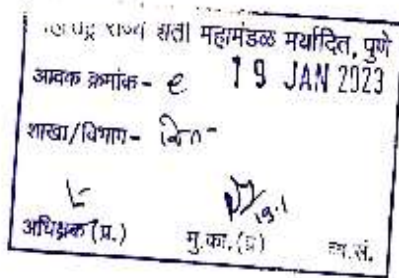 राज्य शेती महामंडळ मर्यादित, पुणे
आवक क्रमांक - e 19 JAN 2023
शाखा/विभाग -
19.1
अधिक्षक (प्र.) मु.का.(प्र) व्य.सं.